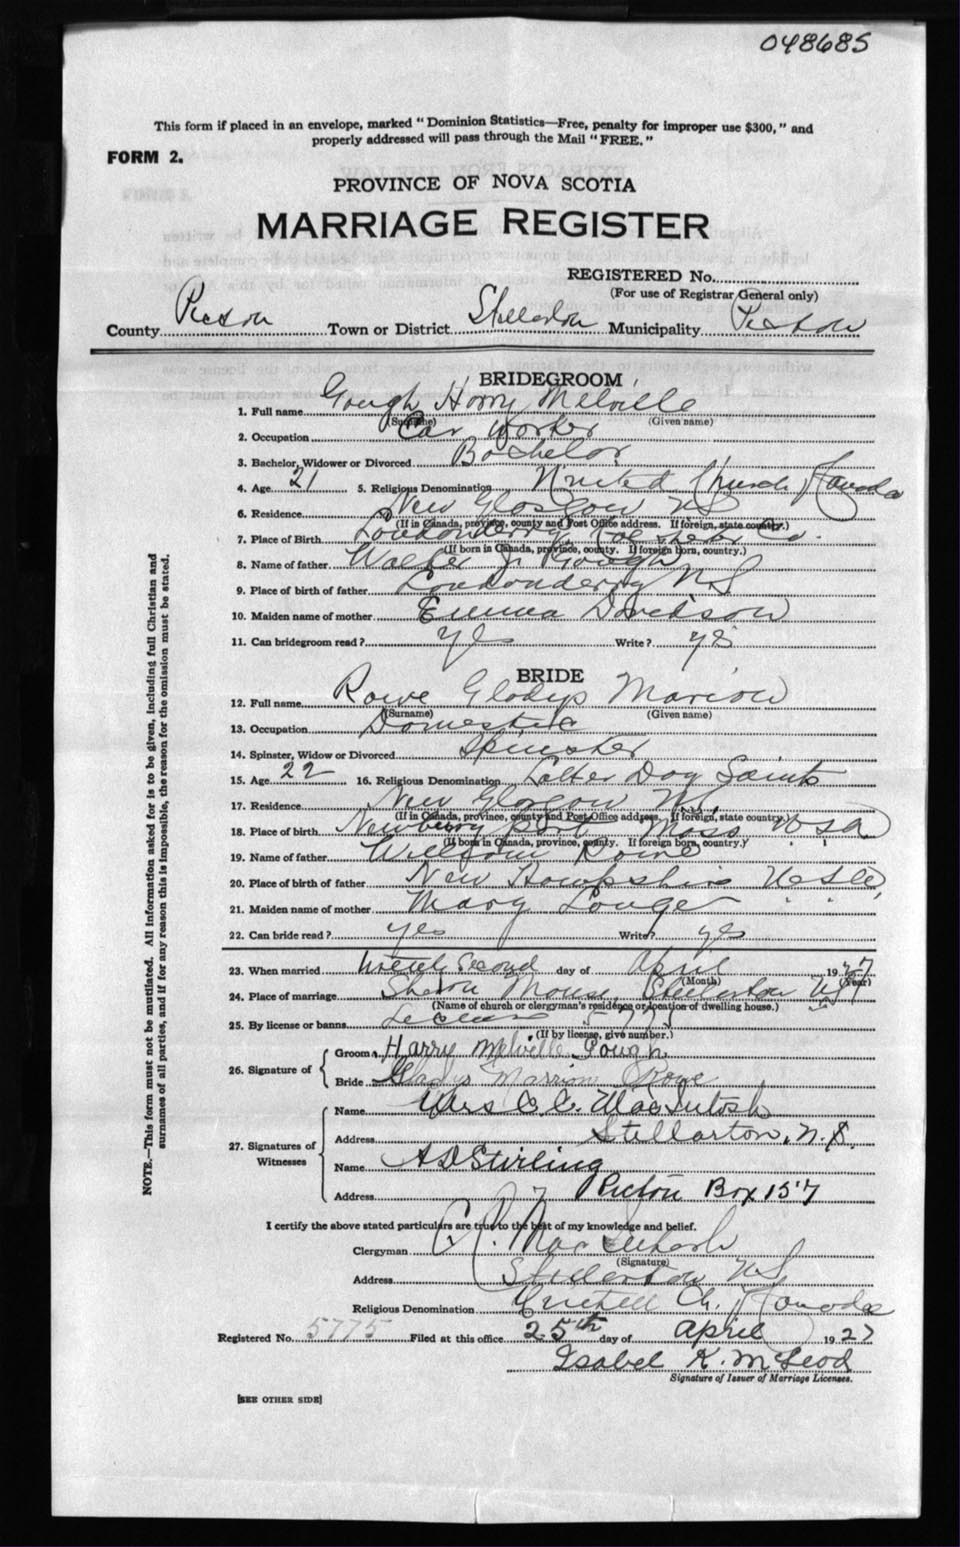 048685
This form if placed in an envelope, marked "Dominion Statistics—Free, penalty for improper use $300," and
properly addressed will pass through the Mail "FREE."
FORM 2.
PROVINCE OF NOVA SCOTIA
MARRIAGE REGISTER
REGISTERED No.
(For use of Registrar General only)
County Pictou Town or District Stellarton Municipality Pictou
BRIDEGROOM
1. Full name Gough Harry Melville
(Surname) (Given name)
2. Occupation Car Worker
3. Bachelor, Widower or Divorced Bachelor
4. Age 21 5. Religious Denomination United Church Canada
6. Residence New Glasgow NS
(If in Canada, province, county and Post Office address. If foreign, state country.)
7. Place of Birth Londonderry, Colchester Co.
(If born in Canada, province, county. If foreign born, country.)
8. Name of father Walter J. Gough
9. Place of birth of father Londonderry NS
10. Maiden name of mother Emma Davidson
11. Can bridegroom read? yes Write? yes
BRIDE
12. Full name Rowe Gladys Marion
(Surname) (Given name)
13. Occupation Domestic
14. Spinster, Widow or Divorced Spinster
15. Age 22 16. Religious Denomination Latter Day Saints
17. Residence New Glasgow NS
(If in Canada, province, county and Post Office address. If foreign, state country.)
18. Place of birth Newbury port Mass USA
(If born in Canada, province, county. If foreign born, country.)
19. Name of father William Rowe
20. Place of birth of father New Hampshire USA
21. Maiden name of mother Mary
22. Can bride read? yes Write? yes
23. When married Twenty Second day of April 1927
(Month) (Year)
24. Place of marriage Sharon Manse, Stellarton NS
(Name of church or clergyman's residence or location of dwelling house.)
25. By license or banns License 5775
(If by license, give number.)
26. Signature of
Groom Harry Melville Gough
Bride Gladys Marrion Rowe
27. Signatures of Witnesses
Name Mrs C. C. MacIntosh
Address Stellarton, N.S.
Name A D Stirling
Address Pictou Box 157
I certify the above stated particulars are true to the best of my knowledge and belief.
Clergyman MacIntosh
(Signature)
Address Stellarton NS
Religious Denomination United Ch. Canada
Registered No. 5775 Filed at this office 25th day of April 1927
Isabel K. McLeod
Signature of Issuer of Marriage Licenses.
[SEE OTHER SIDE]
NOTE.—This form must not be mutilated. All information asked for is to be given, including full Christian and
surnames of all parties, and if for any reason this is impossible, the reason for the omission must be stated.